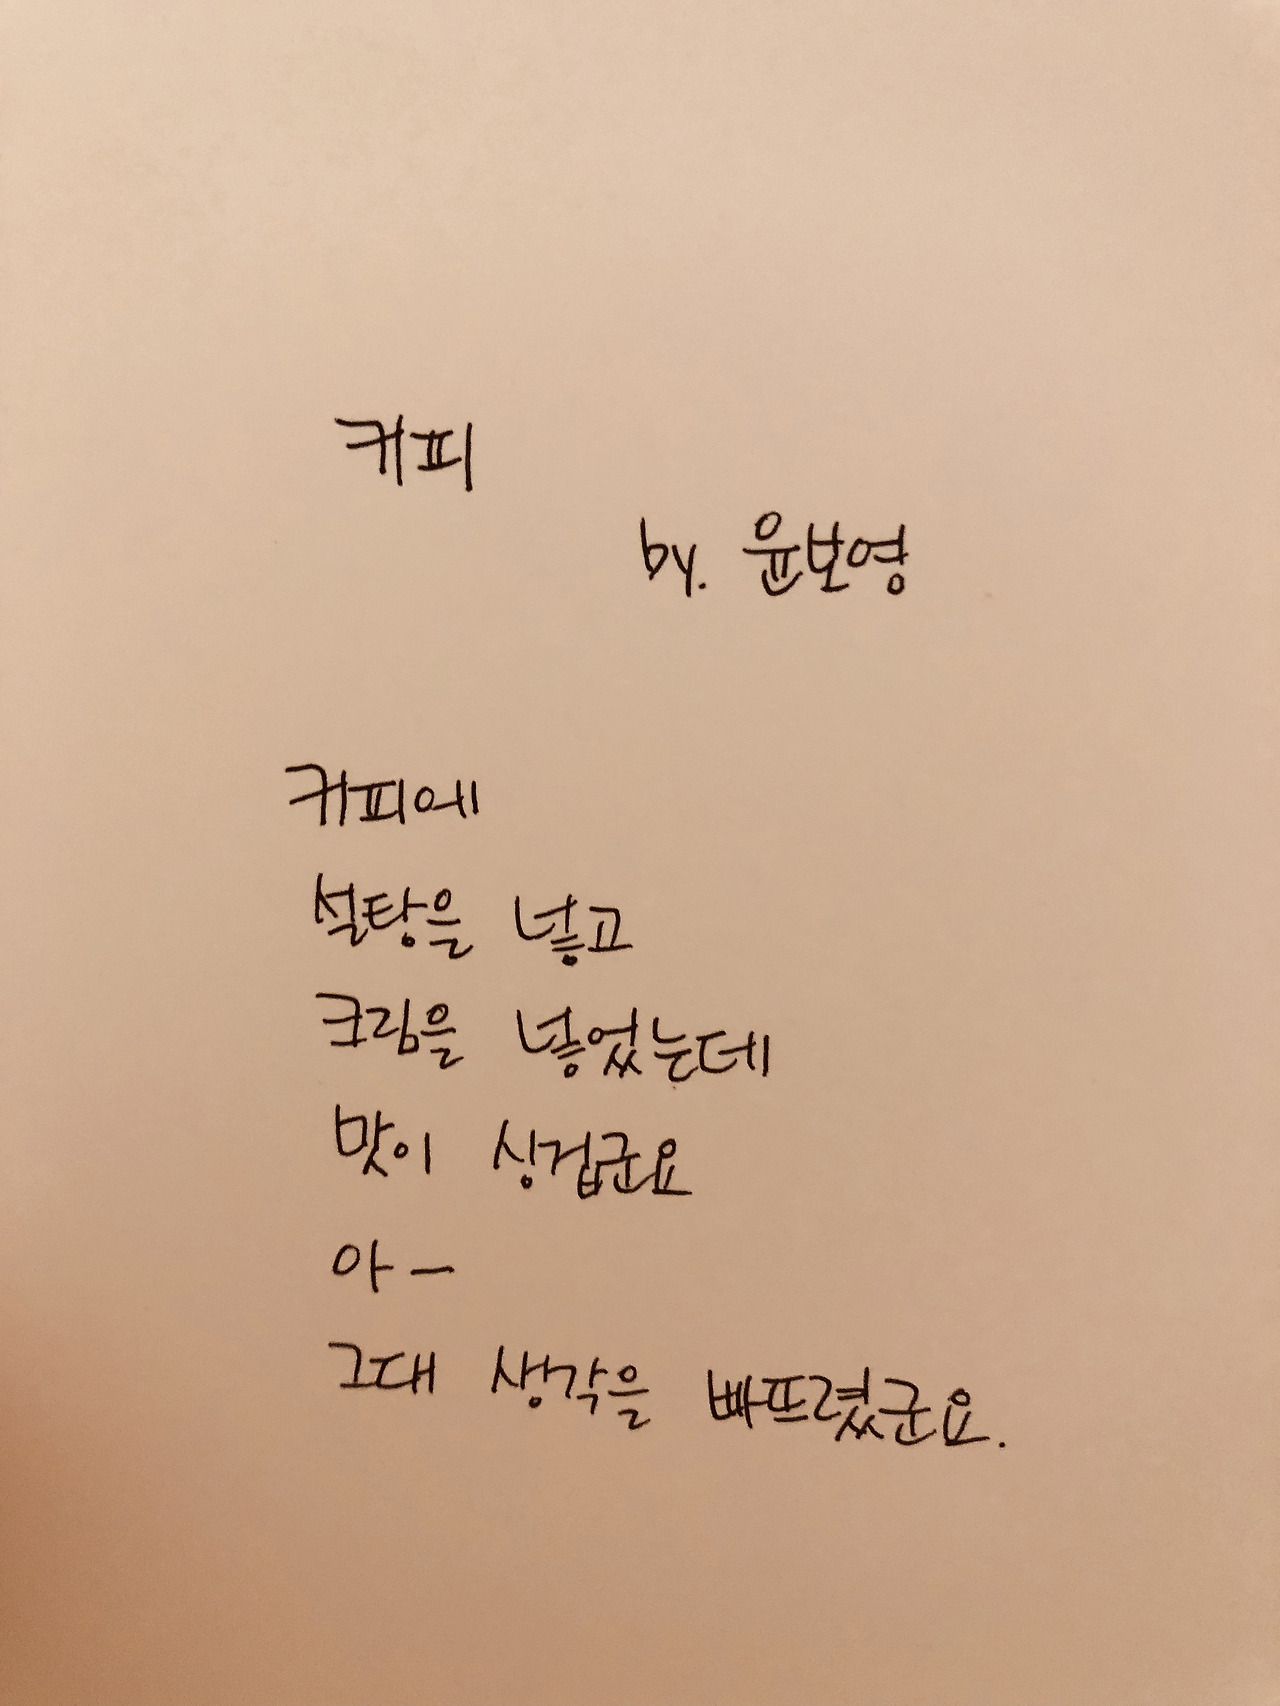 커피
by. 윤보영
커피에
설탕을 넣고
크림을 넣었는데
맛이 싱겁군요
아-
그대 생각을 빠뜨렸군요.